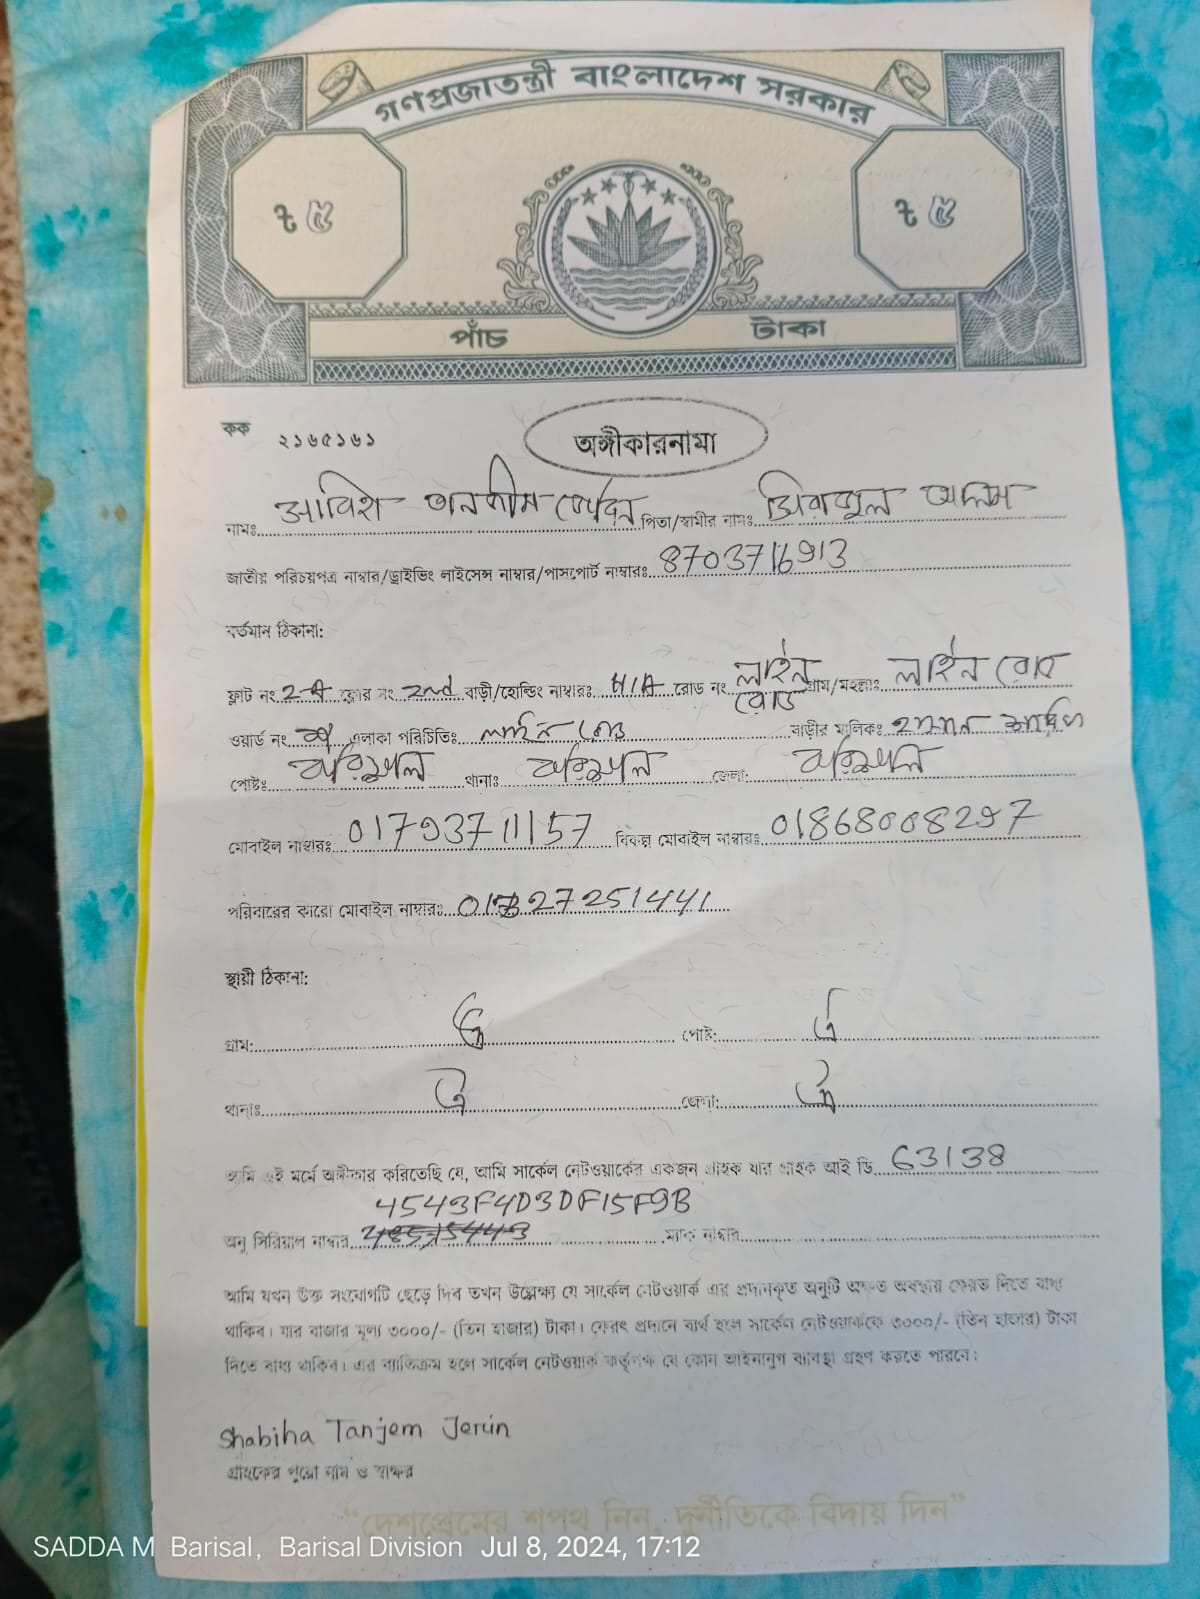 গণপ্রজাতন্ত্রী বাংলাদেশ সরকার
৳ ৫ ৳ ৫
পাঁচ টাকা
কক ২১৬৫১৬১
অঙ্গীকারনামা
নামঃ পিতা/স্বামীর নামঃ সিরাজুল আলম
জাতীয় পরিচয়পত্র নাম্বার/ড্রাইভিং লাইসেন্স নাম্বার/পাসপোর্ট নাম্বারঃ 8703716913
বর্তমান ঠিকানা:
ফ্লাট নং 2-A ফ্লোর নং 2nd বাড়ী/হোল্ডিং নাম্বারঃ H/A রোড নং লাইন রোড গ্রাম/মহল্লাঃ লাইন রোড
ওয়ার্ড নং এলাকা পরিচিতিঃ লাইন রোড বাড়ীর মালিকঃ
পোষ্টঃ বরিশাল থানাঃ বরিশাল জেলা: বরিশাল
মোবাইল নাম্বারঃ 01793711157 বিকল্প মোবাইল নাম্বারঃ 01868008297
পরিবারের কারো মোবাইল নাম্বারঃ
স্থায়ী ঠিকানা:
গ্রাম: ঐ পোষ্ট: ঐ
থানাঃ ঐ জেলা: ঐ
আমি এই মর্মে অঙ্গীকার করিতেছি যে, আমি সার্কেল নেটওয়ার্কের একজন গ্রাহক যার গ্রাহক আই ডি 63138
4543F4D3DF15F9B
অনু সিরিয়াল নাম্বার ম্যাক নাম্বার
আমি যখন উক্ত সংযোগটি ছেড়ে দিব তখন উল্লেক্ষ্য যে সার্কেল নেটওয়ার্ক এর প্রদানকৃত অনুটি অক্ষত অবস্থায় ফেরত দিতে বাধ্য
থাকিব। যার বাজার মূল্য ৩০০০/- (তিন হাজার) টাকা। ফেরৎ প্রদানে ব্যর্থ হলে সার্কেল নেটওয়ার্ককে ৩০০০/- (তিন হাজার) টাকা
দিতে বাধ্য থাকিব। এর ব্যতিক্রম হলে সার্কেল নেটওয়ার্ক কর্তৃপক্ষ যে কোন আইনানুগ ব্যবস্থা গ্রহণ করতে পারবে।
Shabiha Tanjem Jerin
গ্রাহকের পুরো নাম ও স্বাক্ষর
“দেশপ্রেমের শপথ নিন, দুর্নীতিকে বিদায় দিন”
SADDA M Barisal, Barisal Division Jul 8, 2024, 17:12